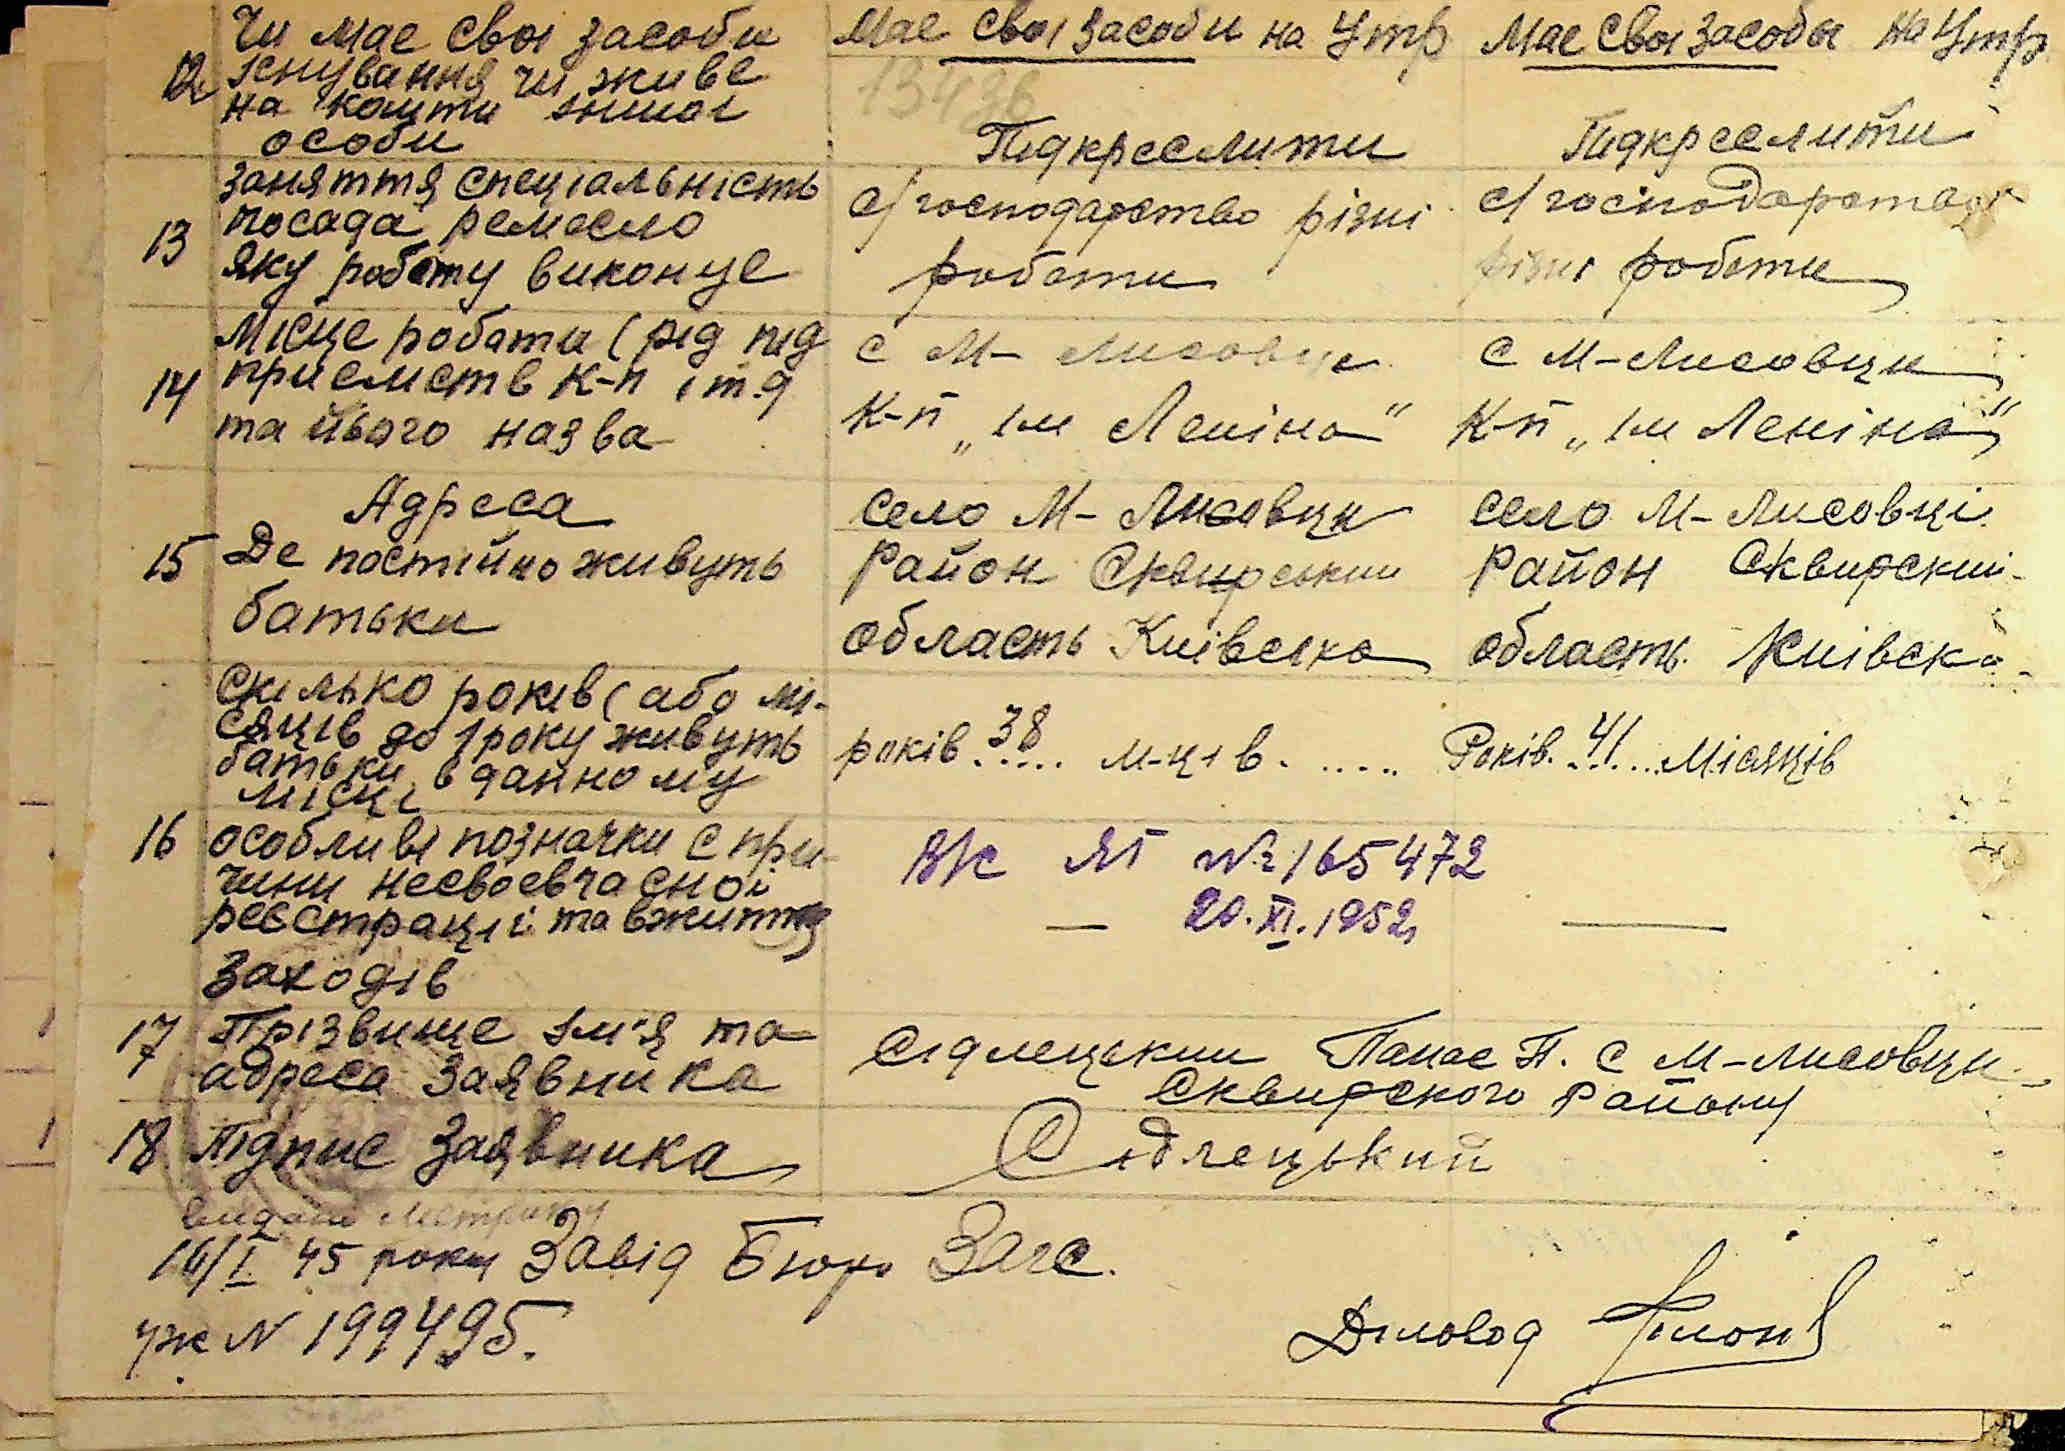 Чи має свої засоби
12 існування чи живе
на кошти іншої
особи
Має свої засоби на Утр
Має свої засобы на Утр
13436
Підкреслити
Підкреслити
заняття спеціальність
13 посада ремесло
яку роботу виконує
с/господарство різні
роботи
с/господарство
різні роботи
місце роботи (рід під
14 приємств к-п і т.д
та йього назва
с М-Лисовци
к-п „ім Леніна"
с М-Лисовци
к-п „ім Леніна"
Адреса
15 Де постійно живуть
батьки
село М-Лисовци
район Сквирський
область Київска
село М-Лисовці
район Сквирский
область Київска
Скілько років (або мі-
сяців до 1 року живуть
батьки в данному
місці
років..38... м-ців.....
Років..41...Місяців
16 особливі позначки с при-
чини несвоєвчасної
реєстрації та вжиття
заходів
ЯГ № 165472
— 20.XI.1952 —
17 Прізвище ім'я та
адреса Заявника
Сідлецький Панас П. с М-Лисовци
Сквирского району
18 Підпис Заявника
Сідлецький
видано метрику
16/I 45 року Завід Бюро Загс.
уж N 199495.
Діловод